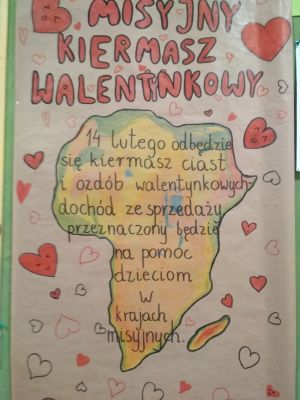 MISYJNY
KIERMASZ
WALENTYNKOWY
14 lutego odbędzie
się kiermasz ciast
i ozdób walentynkowych
dochód ze sprzedaży
przeznaczony będzie
na pomoc
dzieciom
w
krajach
misyjnych.